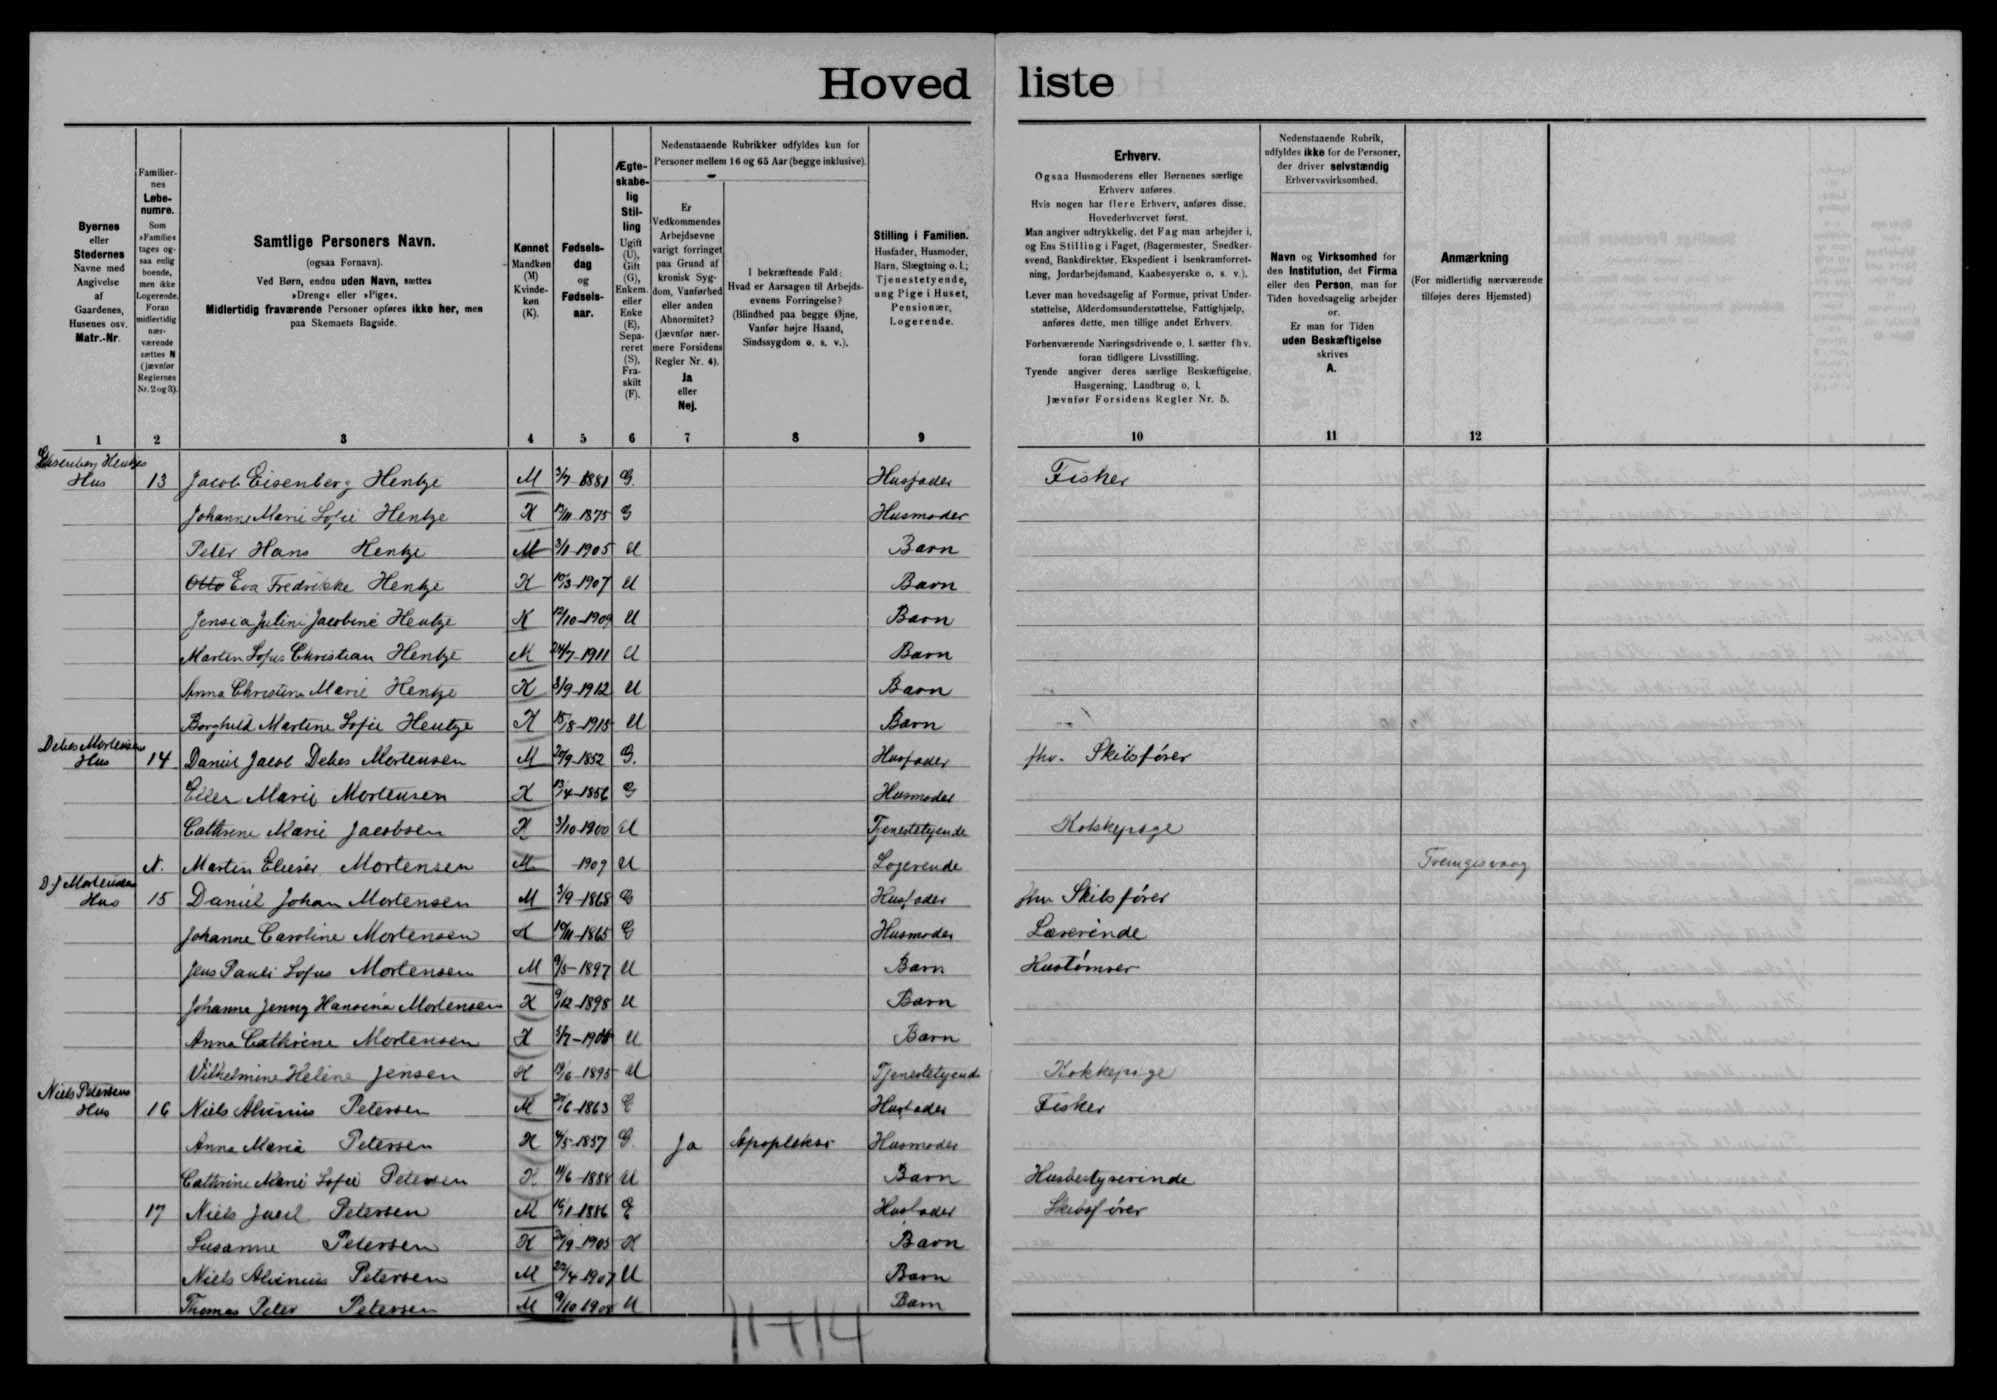 Hoved liste
Byernes
eller
Stedernes
Navne med
Angivelse
af
Gaardenes,
Husenes osv.
Matr.-Nr.
Familier-
nes
Løbe-
numre.
Som
»Familie«
tages og-
saa enlig
boende,
men ikke
Logerende.
Foran
midlertidig
nær-
værende
sættes N
(jævnfør
Reglernes
Nr. 2 og 3).
Samtlige Personers Navn.
(ogsaa Fornavn).
Ved Børn, endnu uden Navn, sættes
»Dreng« eller »Pige«.
Midlertidig fraværende Personer opføres ikke her, men
paa Skemaets Bagside.
Kønnet
Mandkøn
(M)
Kvinde-
køn
(K).
Fødsels-
dag
og
Fødsels-
aar.
Ægte-
skabe-
lig
Stil-
ling
Ugift
(U),
Gift
(G),
Enkem.
eller
Enke
(E),
Sepa-
reret
(S),
Fra-
skilt
(F).
Nedenstaaende Rubrikker udfyldes kun for
Personer mellem 16 og 65 Aar (begge inklusive).
Er
Vedkommendes
Arbejdsevne
varigt forringet
paa Grund af
kronisk Syg-
dom, Vanførhed
eller anden
Abnormitet?
(Jævnfør nær-
mere Forsidens
Regler Nr. 4).
Ja
eller
Nej.
I bekræftende Fald:
Hvad er Aarsagen til Arbejds-
evnens Forringelse?
(Blindhed paa begge Øjne,
Vanfør højre Haand,
Sindssygdom o. s. v.).
Stilling i Familien.
Husfader, Husmoder,
Barn, Slægtning o. l.;
Tjenestetyende,
ung Pige i Huset,
Pensionær,
Logerende.
Erhverv.
Ogsaa Husmoderens eller Børnenes særlige
Erhverv anføres.
Hvis nogen har flere Erhverv, anføres disse,
Hovederhvervet først.
Man angiver udtrykkelig, det Fag man arbejder i,
og Ens Stilling i Faget, (Bagermester, Snedker-
svend, Bankdirektør, Ekspedient i Isenkramforret-
ning, Jordarbejdsmand, Kaabesyerske o. s. v.).
Lever man hovedsagelig af Formue, privat Under-
støttelse, Alderdomsunderstøttelse, Fattighjælp,
anføres dette, men tillige andet Erhverv.
Forhenværende Næringsdrivende o. l. sætter fhv.
foran tidligere Livsstilling.
Tyende angiver deres særlige Beskæftigelse,
Husgerning, Landbrug o. l.
Jævnfør Forsidens Regler Nr. 5.
Nedenstaaende Rubrik,
udfyldes ikke for de Personer,
der driver selvstændig
Erhvervsvirksomhed.
Navn og Virksomhed for
den Institution, det Firma
eller den Person, man for
Tiden hovedsagelig arbejder
for.
Er man for Tiden
uden Beskæftigelse
skrives
A.
Anmærkning
(For midlertidig nærværende
tilføjes deres Hjemsted)
1 2 3 4 5 6 7 8 9 10 11 12
Eisenberg Hentzes
Hus 13 Jacob Eisenberg Hentze M 3/7-1881 G. Husfader Fisker
Johanne Marie Sofie Hentze K 12/11-1875 G Husmoder
Peter Hans Hentze M 3/1-1905 U Barn
Otto Eva Fredrikke Hentze K 10/3-1907 U Barn
Jensia Juline Jacobine Hentze K 12/10-1909 U Barn
Marten Sofus Christian Hentze M 24/7-1911 U Barn
Anna Christine Marie Hentze K 8/9-1912 U Barn
Borghild Martine Sofie Hentze K 15/8-1915 U Barn
Debes Mortensens
Hus 14 Daniel Jacob Debes Mortensen M 20/9-1852 G. Husfader fhv. Skibsfører
Ellen Marie Mortensen K 13/4-1856 G Husmoder
Cathrine Marie Jacobsen K 3/10-1900 U Tjenestetyende Kokkepige
N. Martin Elieser Mortensen M -1907 U Logerende Trongisvaag
D J Mortensens
Hus 15 Daniel Johan Mortensen M 3/9-1868 G Husfader fhv Skibsfører
Johanne Caroline Mortensen K 10/11-1865 G Husmoder Lærerinde
Jens Pauli Sofus Mortensen M 9/5-1897 U Barn Hustømrer
Johanne Jenny Hansina Mortensen K 9/12-1898 U Barn
Anna Cathrine Mortensen K 3/7-1900 U Barn
Vilhelmine Helene Jensen K 19/6-1895 U Tjenestetyende Kokkepige
Niels Petersens
Hus 16 Niels Alvinius Petersen M 27/6-1863 G Husfader Fisker
Anna Maria Petersen K 4/5-1857 G. Ja Apopleksi Husmoder
Cathrine Marie Sofie Petersen K 11/6-1888 U Barn Husbestyrerinde
17 Niels Juul Petersen M 16/1-1886 E Husfader Skibsfører
Susanne Petersen K 21/9-1905 K Barn
Niels Alvinius Petersen M 22/4-1907 U Barn
Thomas Peter Petersen M 9/10 1908 U Barn
11+14